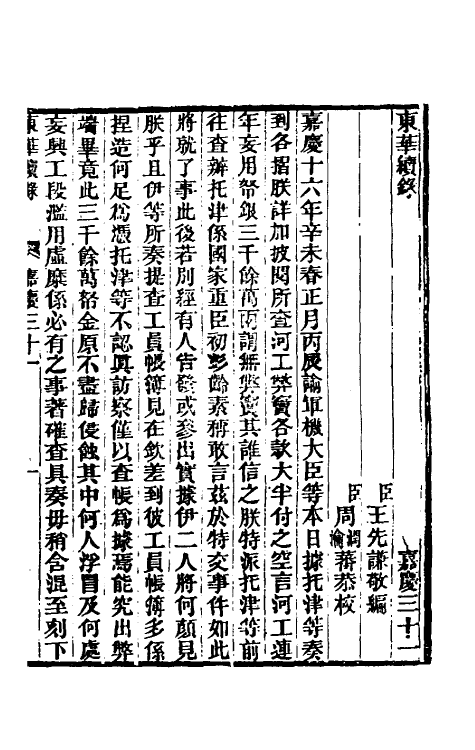 東華續錄 嘉慶三十一
臣王先謙敬編
臣周潤蕃瀹蕃恭校
嘉慶十六年辛未春正月丙辰諭軍機大臣等本日據托津等奏
到各摺朕詳加披閱所查河工弊竇各款大半付之空言河工連
年妄用帑銀三千餘萬兩謂無弊竇其誰信之朕特派托津等前
往查辦托津係國家重臣初彭齡素稱敢言茲於特交事件如此
將就了事此後若別經有人告發或參出實據伊二人將何顏見
朕乎且伊等所奏提查工員帳簿見在欽差到彼工員帳簿多係
捏造何足爲憑托津等不認眞訪察僅以查帳爲據焉能究出弊
端畢竟此三千餘萬帑金原不盡歸侵蝕其中何人浮冒及何處
妄興工段濫用虛糜係必有之事著確查具奏毋稍含混至刻下
東華續錄 嘉慶三十一 一